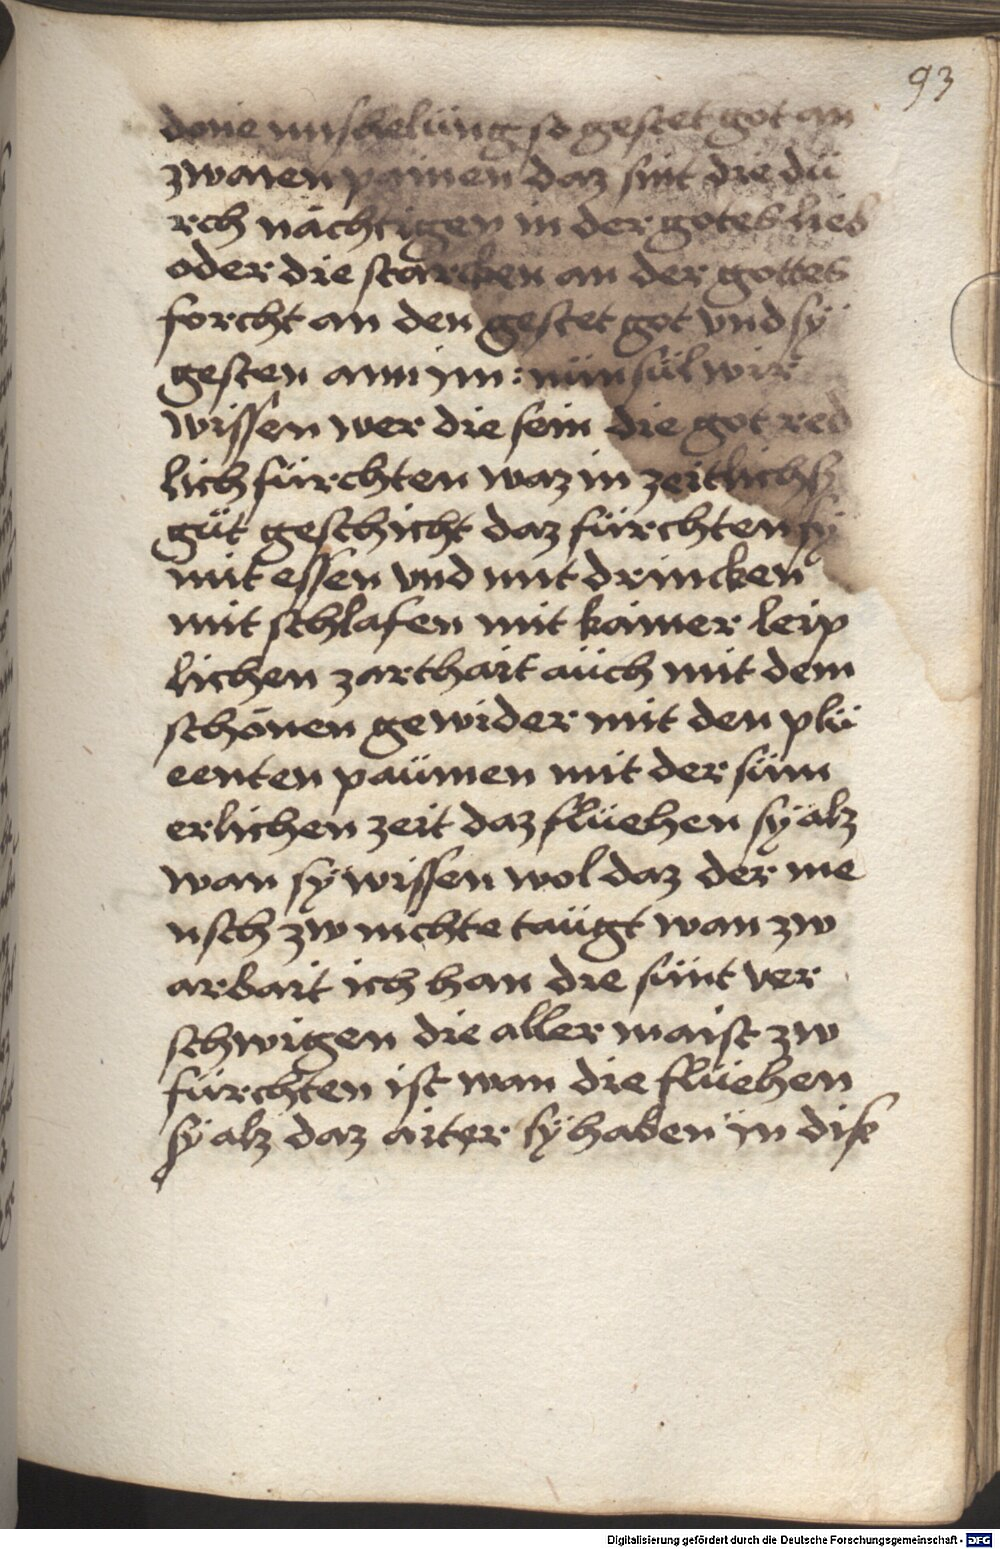 93
done mischelüng so gestet got an
zwaien painen daz sint die dü
rch nächtigen in der gotes lieb
oder die starcken an der gottes
forcht an den gestet got vnd sÿ
gesten ann im : nün sül wir
wissen wer die sein die got red
lich fürchten waz in zeitlichs
güt geschicht daz fürchten sÿ
mit essen vnd mit drincken
mit schlafen mit kainer leip
lichen zarthait aüch mit dem
schönen gewider mit den plü
eenten paümen mit der süm
erlichen zeit daz flüehen sÿ alz
wan sÿ wissen wol daz der me
nsch zw nichte taügt wan zw
arbait ich han die sünt ver
schwigen die aller maist zw
fürchten ist wan die flüehen
sÿ alz daz aiter sÿ haben in dis
Digitalisierung gefördert durch die Deutsche Forschungsgemeinschaft - DFG